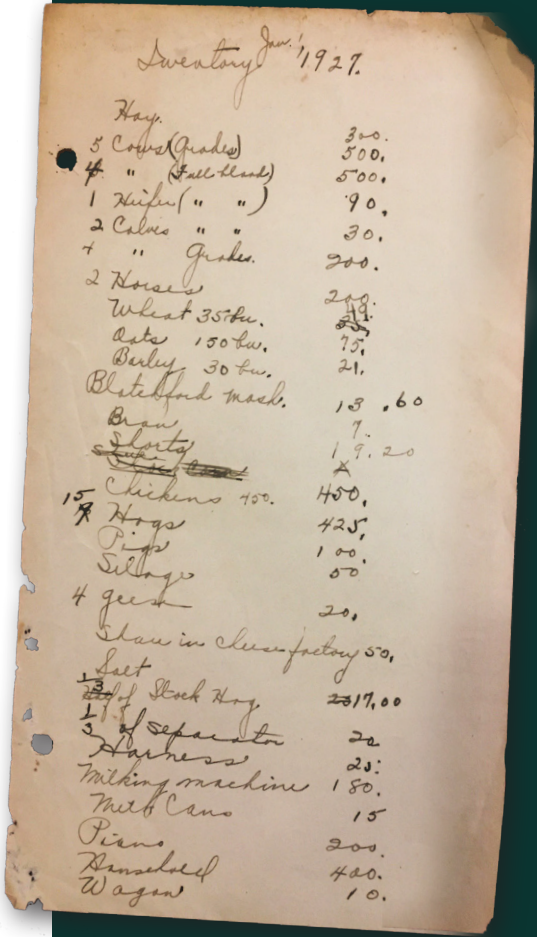 Inventory Jan. 1, 1927.
Hay. 300.
5 Cows (Grades) 500.
4 " (Full bloods) 500.
1 Heifer ( " " ) 90.
2 Calves " " 30.
4 " Grades. 200.
2 Horses 200.
Wheat 35 bu. 49.
Oats 150 bu. 75.
Barley 30 bu. 21.
Blatchford mash. 13.60
Bran 7.
Shorts 19.20
Chickens 450. 450.
15 Hogs 425.
Pigs 100.
Silage 50
4 geese 20.
Share in cheese factory 50.
Salt
1/3 of Stock Hog 17.00
1/3 of separator 20
Harness 25.
Milking machine 180.
Milk Cans 15
Piano 200.
Household 400.
Wagon 10.